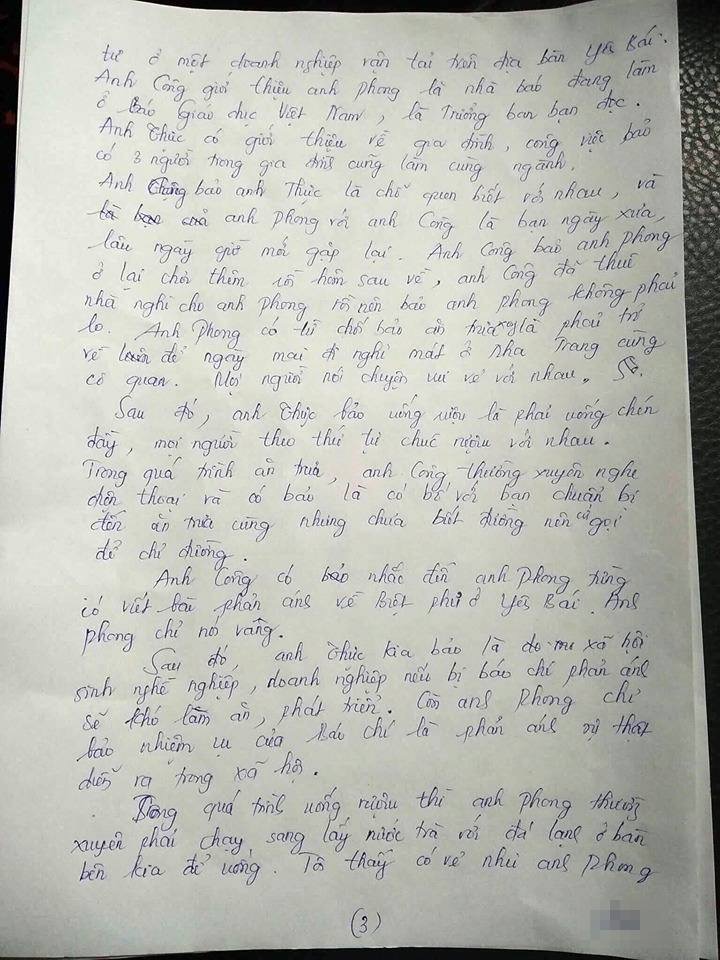 tư ở một doanh nghiệp vận tải trên địa bàn Yên Bái.
Anh Công giới thiệu anh Phong là nhà báo đang làm
ở Báo Giáo dục Việt Nam, là Trưởng ban bạn đọc.
Anh Thức có giới thiệu về gia đình, công việc bảo
có 3 người trong gia đình cùng làm cùng ngành.
Anh Công bảo anh Thức là chỗ quen biết với nhau, và
anh Phong với anh Công là bạn ngày xưa,
lâu ngày giờ mới gặp lại. Anh Công bảo anh Phong
ở lại chơi thêm tối hôm sau về, anh Công đã thuê
nhà nghỉ cho anh Phong rồi nên bảo anh Phong không phải
lo. Anh Phong có từ chối bảo ăn trưa xong là phải trở
về luôn để ngày mai đi nghỉ mát ở Nha Trang cùng
cơ quan. Mọi người nói chuyện vui vẻ với nhau.
Sau đó, anh Thức bảo uống rượu là phải uống chén
đầy, mọi người theo thứ tự chúc rượu với nhau.
Trong quá trình ăn trưa, anh Công thường xuyên nghe
điện thoại và có bảo là có bố với bạn chuẩn bị
đến ăn trưa cùng nhưng chưa biết đường nên cứ gọi
để chỉ đường.
Anh Công có bảo nhắc đến anh Phong từng
có viết bài phản ánh về Biệt phủ ở Yên Bái. Anh
Phong chỉ nói vâng.
Sau đó, anh Thức kia bảo là do xã hội
sinh nghề nghiệp, doanh nghiệp nếu bị báo chí phản ánh
sẽ khó làm ăn, phát triển. Còn anh Phong chỉ
bảo nhiệm vụ của Báo chí là phản ánh sự thật
diễn ra trong xã hội.
Trong quá trình uống rượu thì anh Phong thường
xuyên phải chạy sang lấy nước trà với đá lạnh ở bàn
bên kia để uống. Tôi thấy có vẻ như anh Phong
(3)